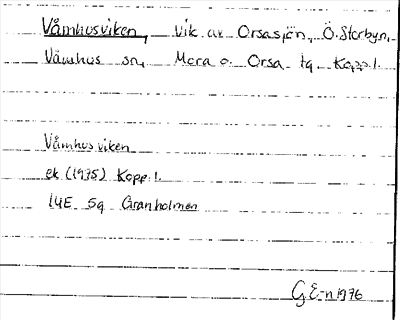 Våmhusviken, vik av Orsasjön, Ö. Storbyn,
Våmhus sn, Mora o. Orsa tg Kopp.l.
Våmhusviken
ek (1975) Kopp.l.
14E 5g Granholmen
GE-n 1976